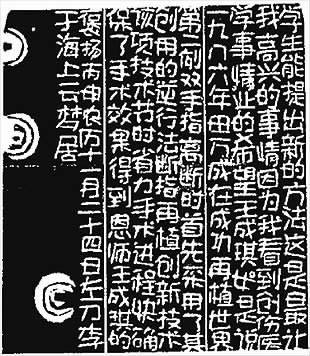 学生能提出新的方法这是最让
我高兴的事情因为我看到创伤医
学事情业的希望王成琪如是说
一九八六年田万成在成功再植世界
第一例双手十指离断的首先采用了其
创用的逆行法断指再植创新技术
该项技术节时省力手术进程快确
保了手术效果得到恩师王成琪的
褒扬丙申农历十一月二十四日左刀李
于海上云梦居